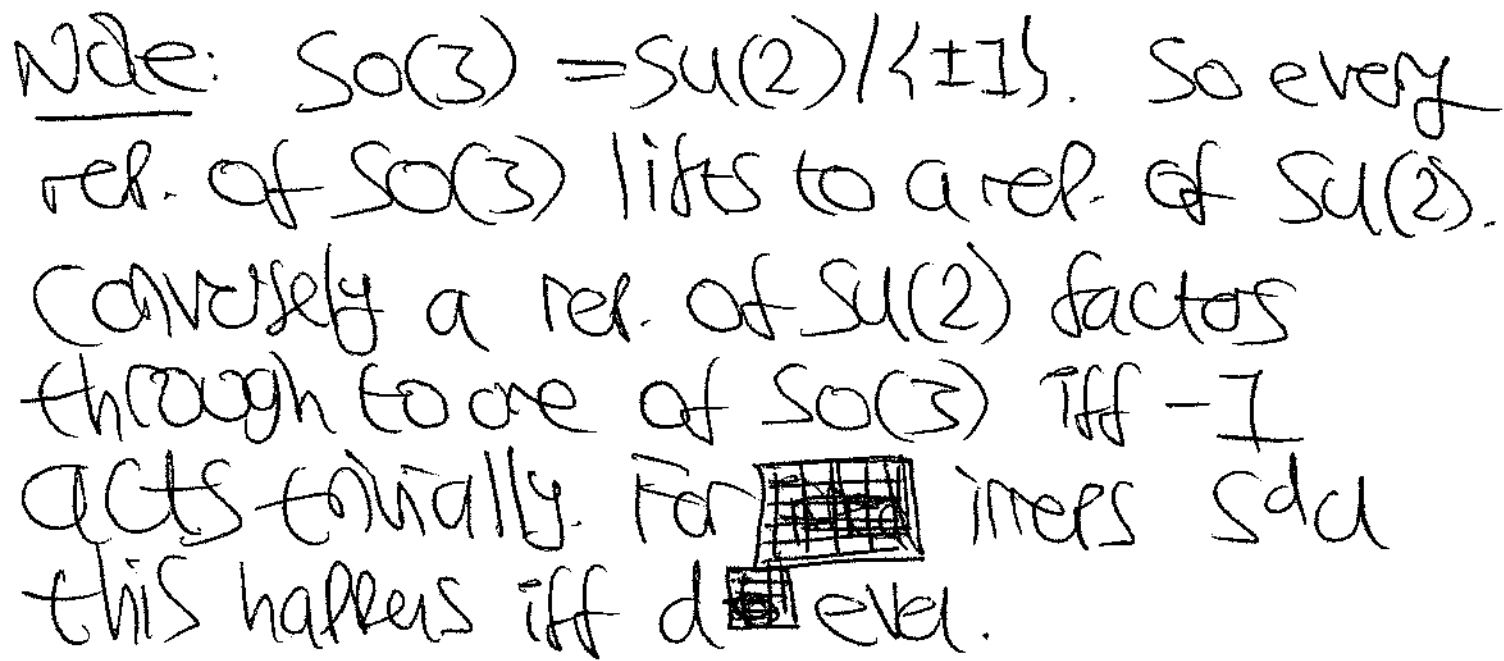 Note: SO(3) = SU(2)/{±I}. So every
rep. of SO(3) lifts to a rep. of SU(2).
Conversely a rep. of SU(2) factors
through to one of SO(3) iff -I
acts trivially. For irreps SᵈU
this happens iff d even.